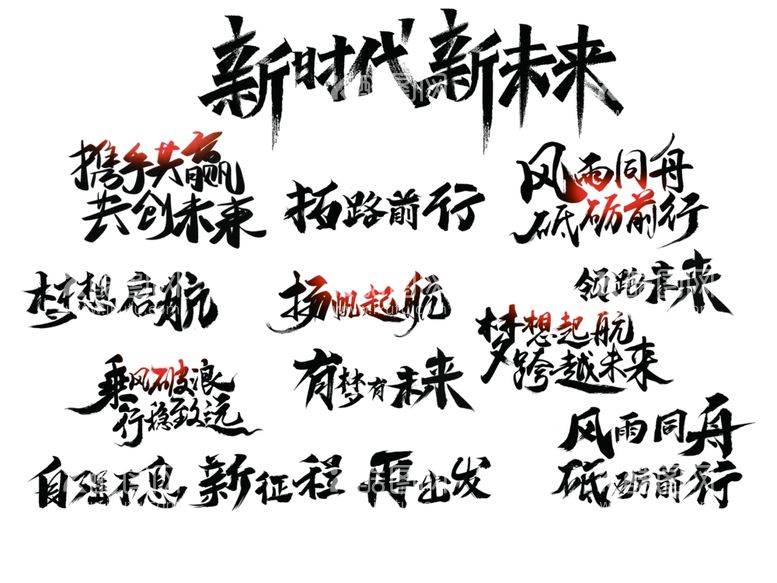 新时代 新未来
携手共赢
共创未来
拓路前行
风雨同舟
砥砺前行
梦想启航
扬帆起航
领跑未来
梦想起航
跨越未来
乘风破浪
行稳致远
有梦有未来
风雨同舟
砥砺前行
自强不息
新征程 再出发